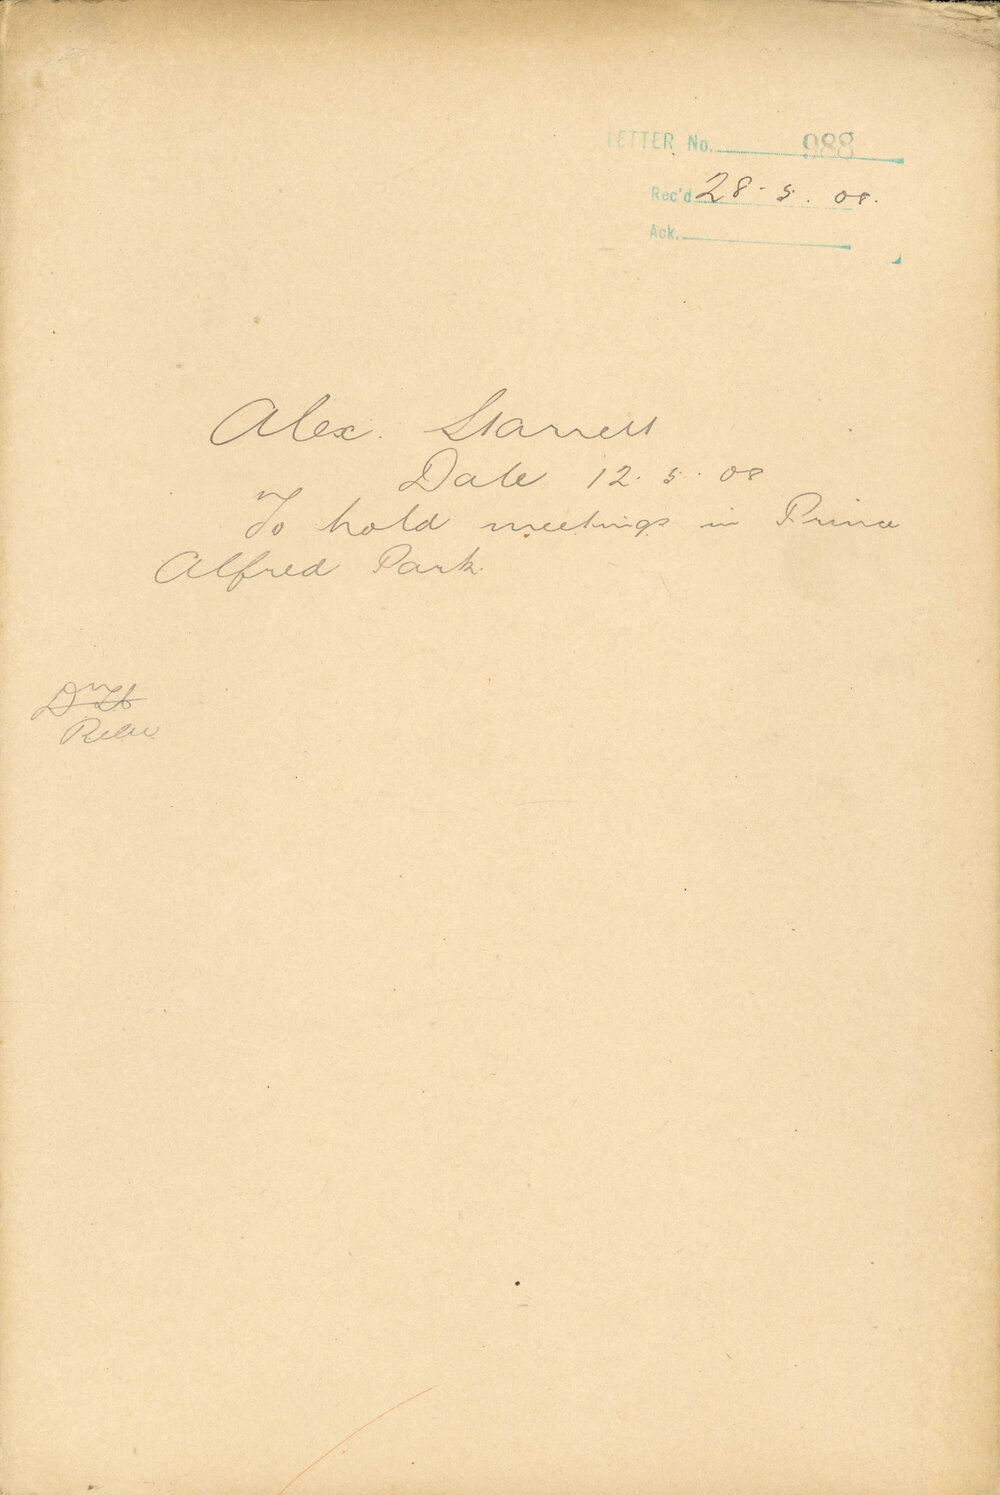 LETTER No. 988
Rec'd 28-5.08.
Ack.
Alex. Starrett
Date 12.5.08
To hold meetings in Prince
Alfred Park.